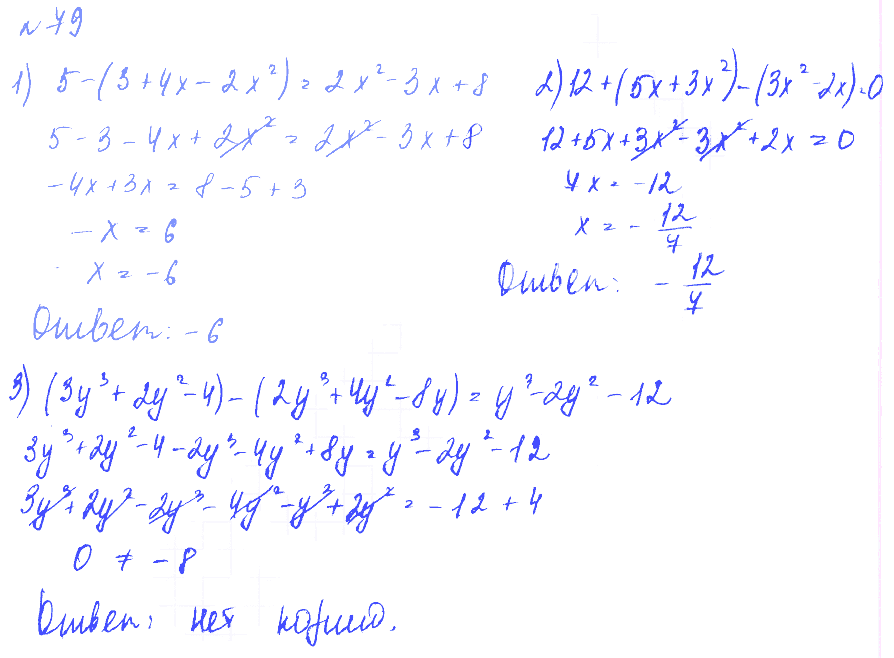 № 79
1) 5-(3+4x-2x²)=2x²-3x+8
5-3-4x+2x²=2x²-3x+8
-4x+3x=8-5+3
-x=6
x=-6
Ответ: -6
2) 12+(5x+3x²)-(3x²-2x)=0
12+5x+3x²-3x²+2x=0
7x=-12
x=-12/7
Ответ: -12/7
3) (3y³+2y²-4)-(2y³+4y²-8y)=y³-2y²-12
3y³+2y²-4-2y³-4y²+8y=y³-2y²-12
3y³+2y²-2y³-4y²-y³+2y²=-12+4
0≠-8
Ответ: нет